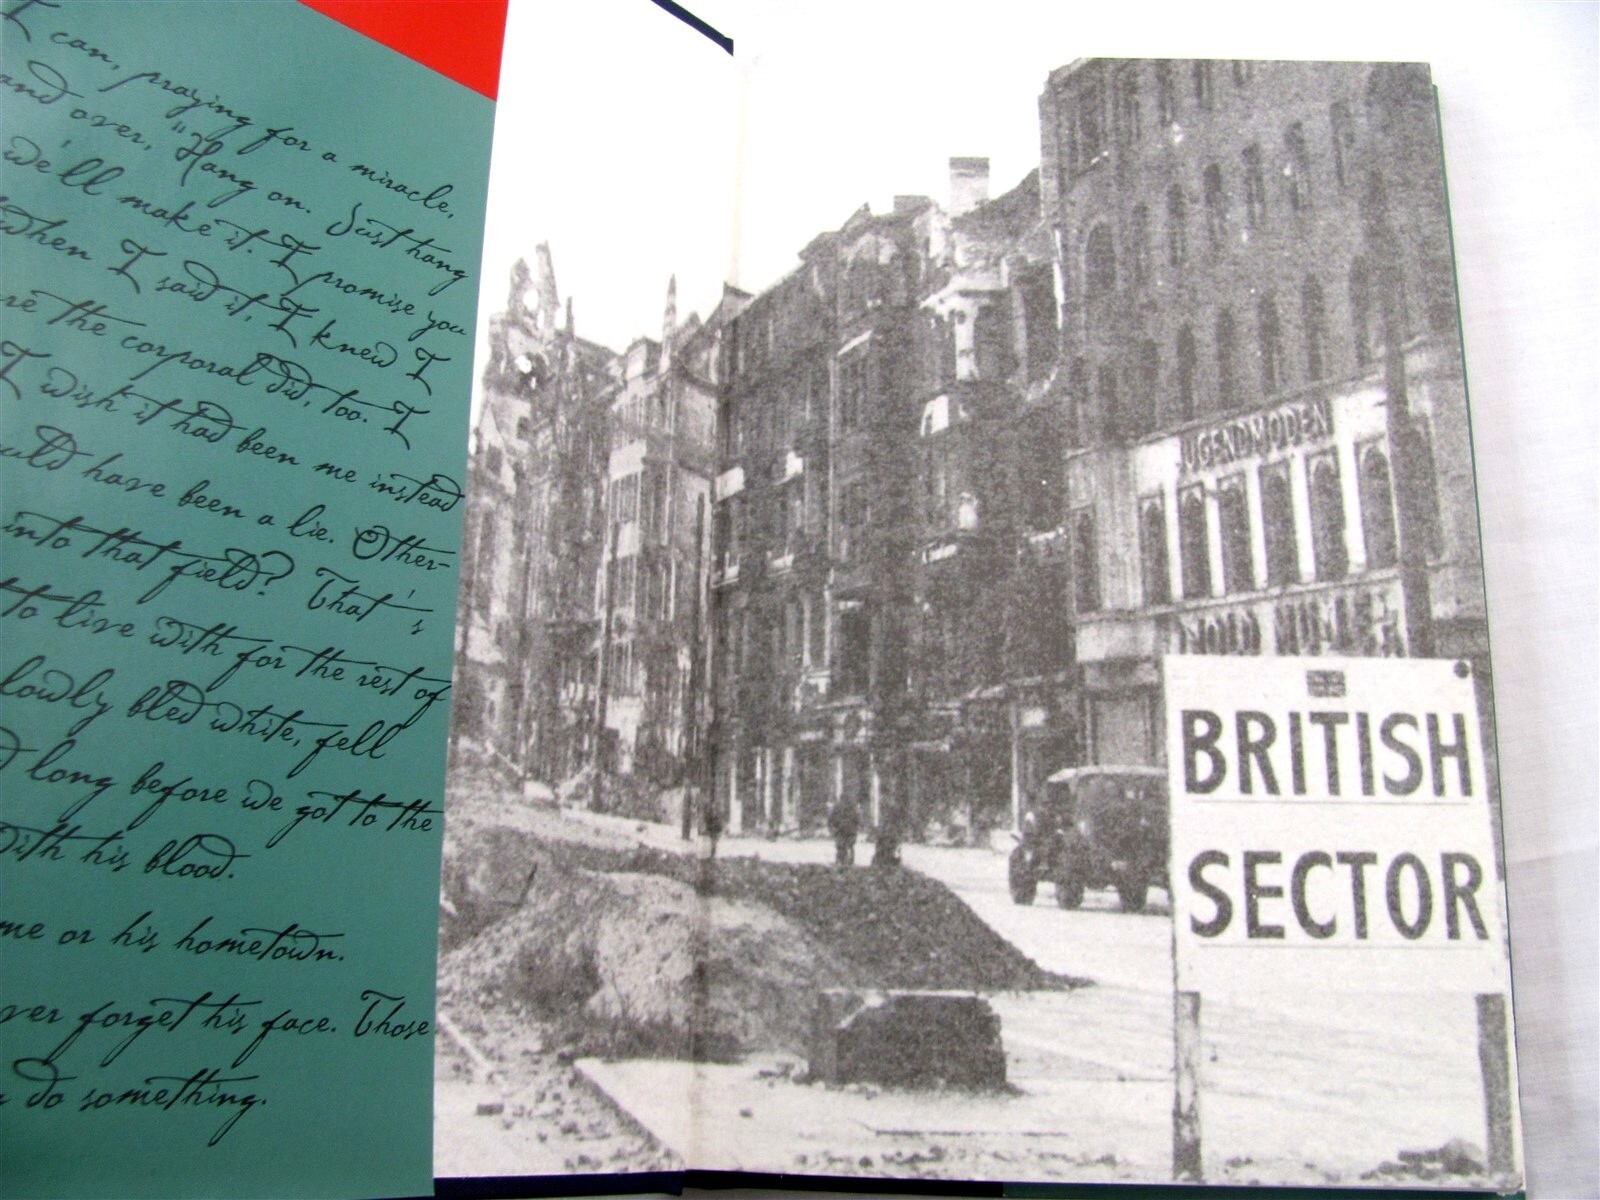 I can, praying for a miracle,
and over, "Hang on. Just hang
we'll make it. I promise you
when I said it, I knew I
re the corporal did, too. I
I wish it had been me instead
ould have been a lie. Other-
into that field? That's
to live with for the rest of
lowly bled white, fell
d long before we got to the
with his blood.
me or his hometown.
ver forget his face. Those
do something.
JUGENDMODEN
BRITISH
SECTOR